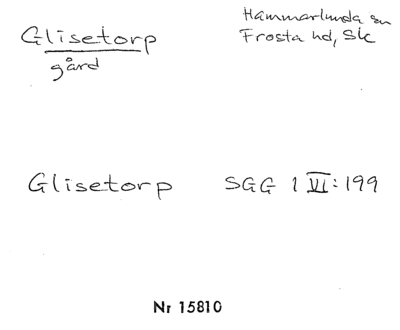 Glisetorp
gård
Hammarlunda sn
Frosta hd, Sk
Glisetorp SGG 1 VI:199
Nr 15810